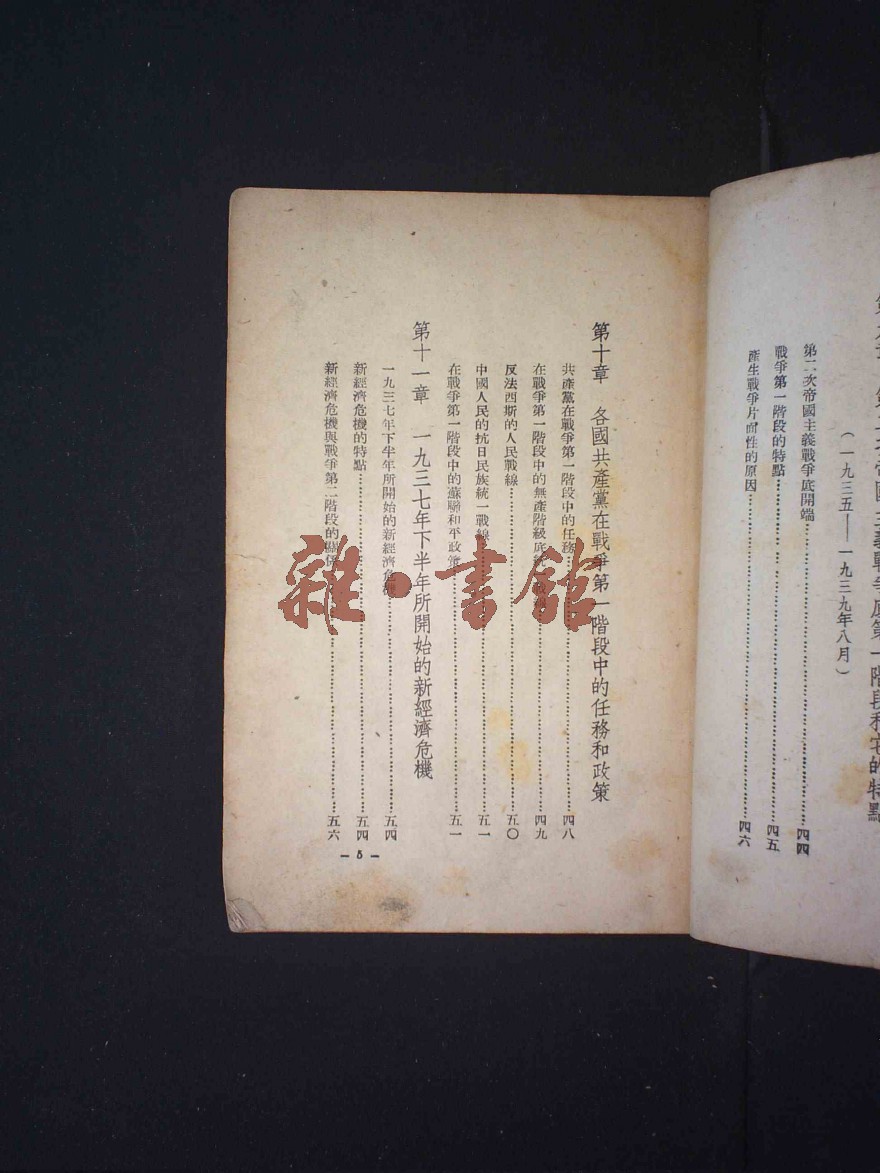 第二次帝國主義戰爭底第一階段和它的特點
(一九三五——一九三九年八月)
第二次帝國主義戰爭底開端……四四
戰爭第一階段的特點……四五
產生戰爭片面性的原因……四六
第十章 各國共產黨在戰爭第一階段中的任務和政策
共產黨在戰爭第一階段中的任務……四八
在戰爭第一階段中的無產階級底統一戰線……四九
反法西斯的人民戰線……五〇
中國人民的抗日民族統一戰線……五一
在戰爭第一階段中的蘇聯和平政策……五一
第十一章 一九三七年下半年所開始的新經濟危機
一九三七年下半年所開始的新經濟危機……五四
新經濟危機的特點……五四
新經濟危機與戰爭第二階段的關係……五六
— 5 —
雜·書館